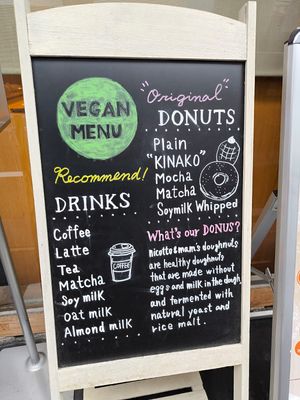 VEGAN
MENU
Recommend!
DRINKS
Coffee
Latte
Tea
Matcha
Soy milk
oat milk
Almond milk
COFFEE
"Original"
DONUTS
Plain
"KINAKO"
Mocha
Matcha
Soymilk Whipped
What's our DONUS?
nicotto&mam's doughnuts
are healthy doughnuts
that are made without
eggs and milk in the dough,
and fermented with
natural yeast and
rice malt.